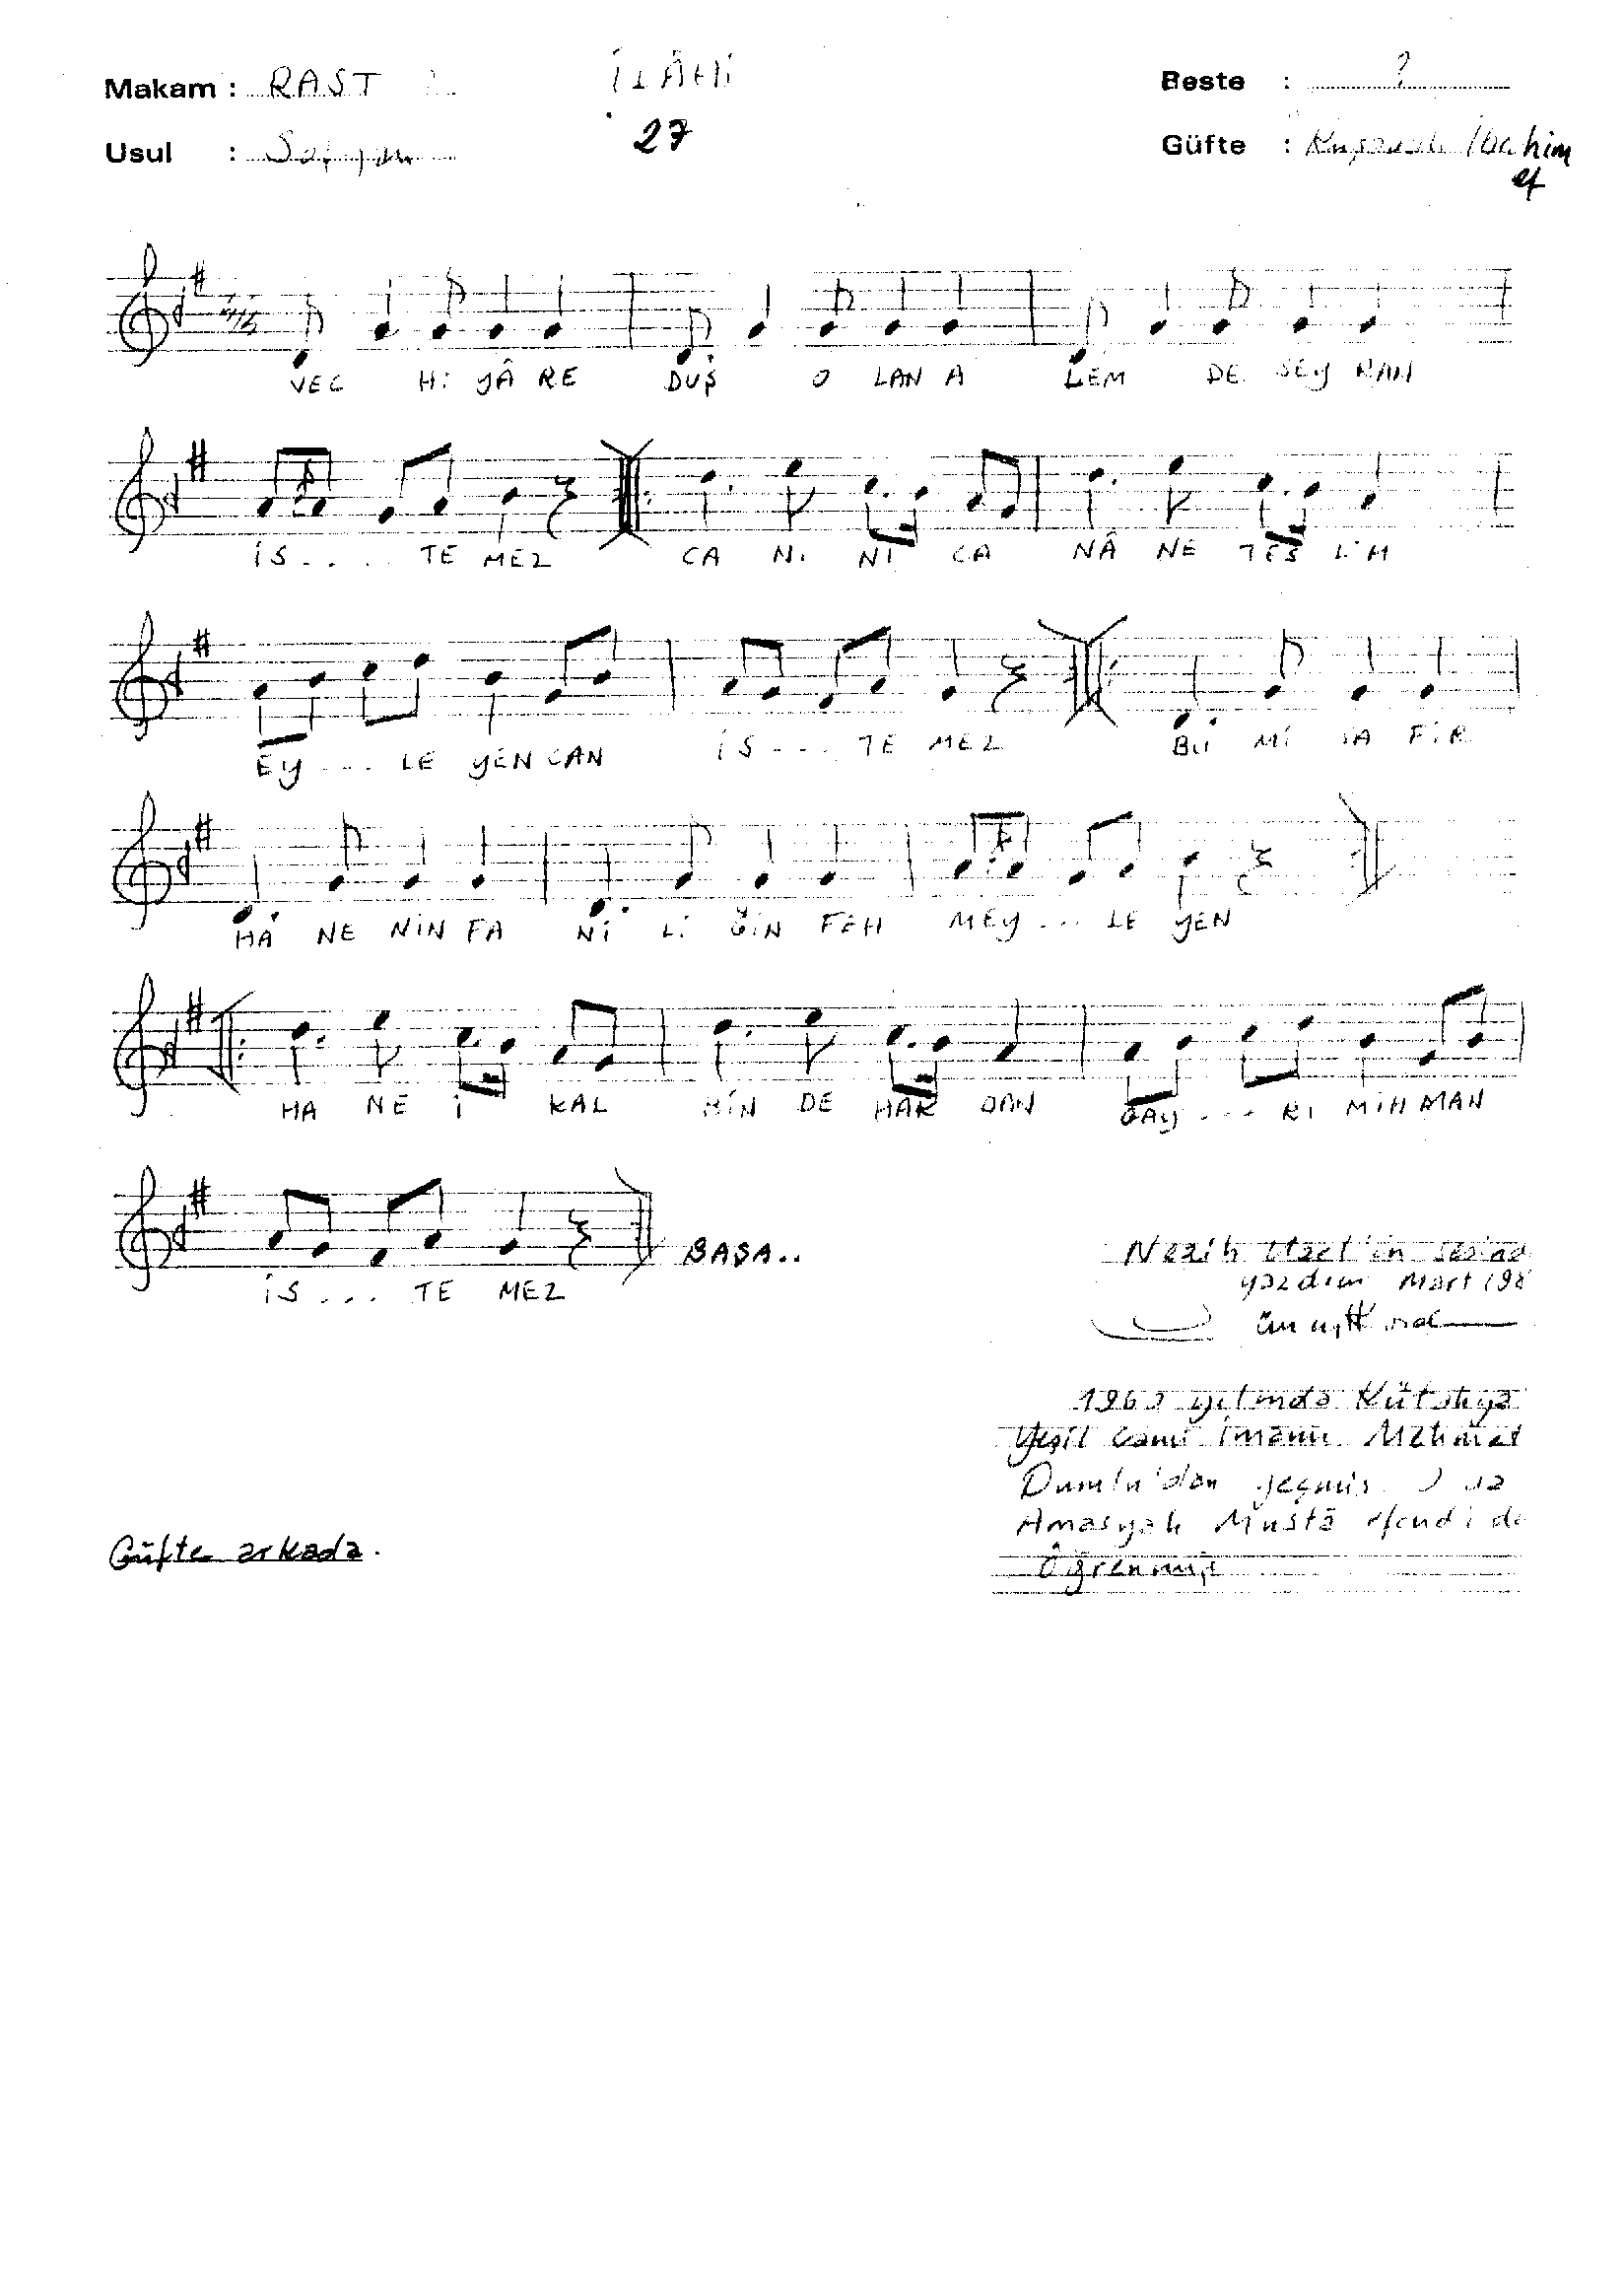 Makam : RAST İLÂHİ Beste : ?
Usul : Sofyan 27 Güfte : Kuşadalı İbrahim
ef
VEC Hİ YÂ RE DUŞ O LAN A LEM DE SEY RAN
İS.... TE MEZ CA NI NI CA NÂ NE TES LİM
EY ... LE YEN CAN İS ... TE MEZ BU Mİ SA FİR
HA NE NİN FA Nİ Lİ ĞİN FEH MEY ... LE YEN
HA NE İ KAL BİN DE HAK DAN GAY ... RI MİH MAN
İS ... TE MEZ BAŞA..
Nezih Uzel'in sesinde
yazdım Mart 198
1960 yılında Kütahya
Yeşil Cami İmamı Mehmet
Dumlu'dan geçmiş. O da
Amasyalı Mustâ efendi de
Öğrenmiş
Güfte arkada.